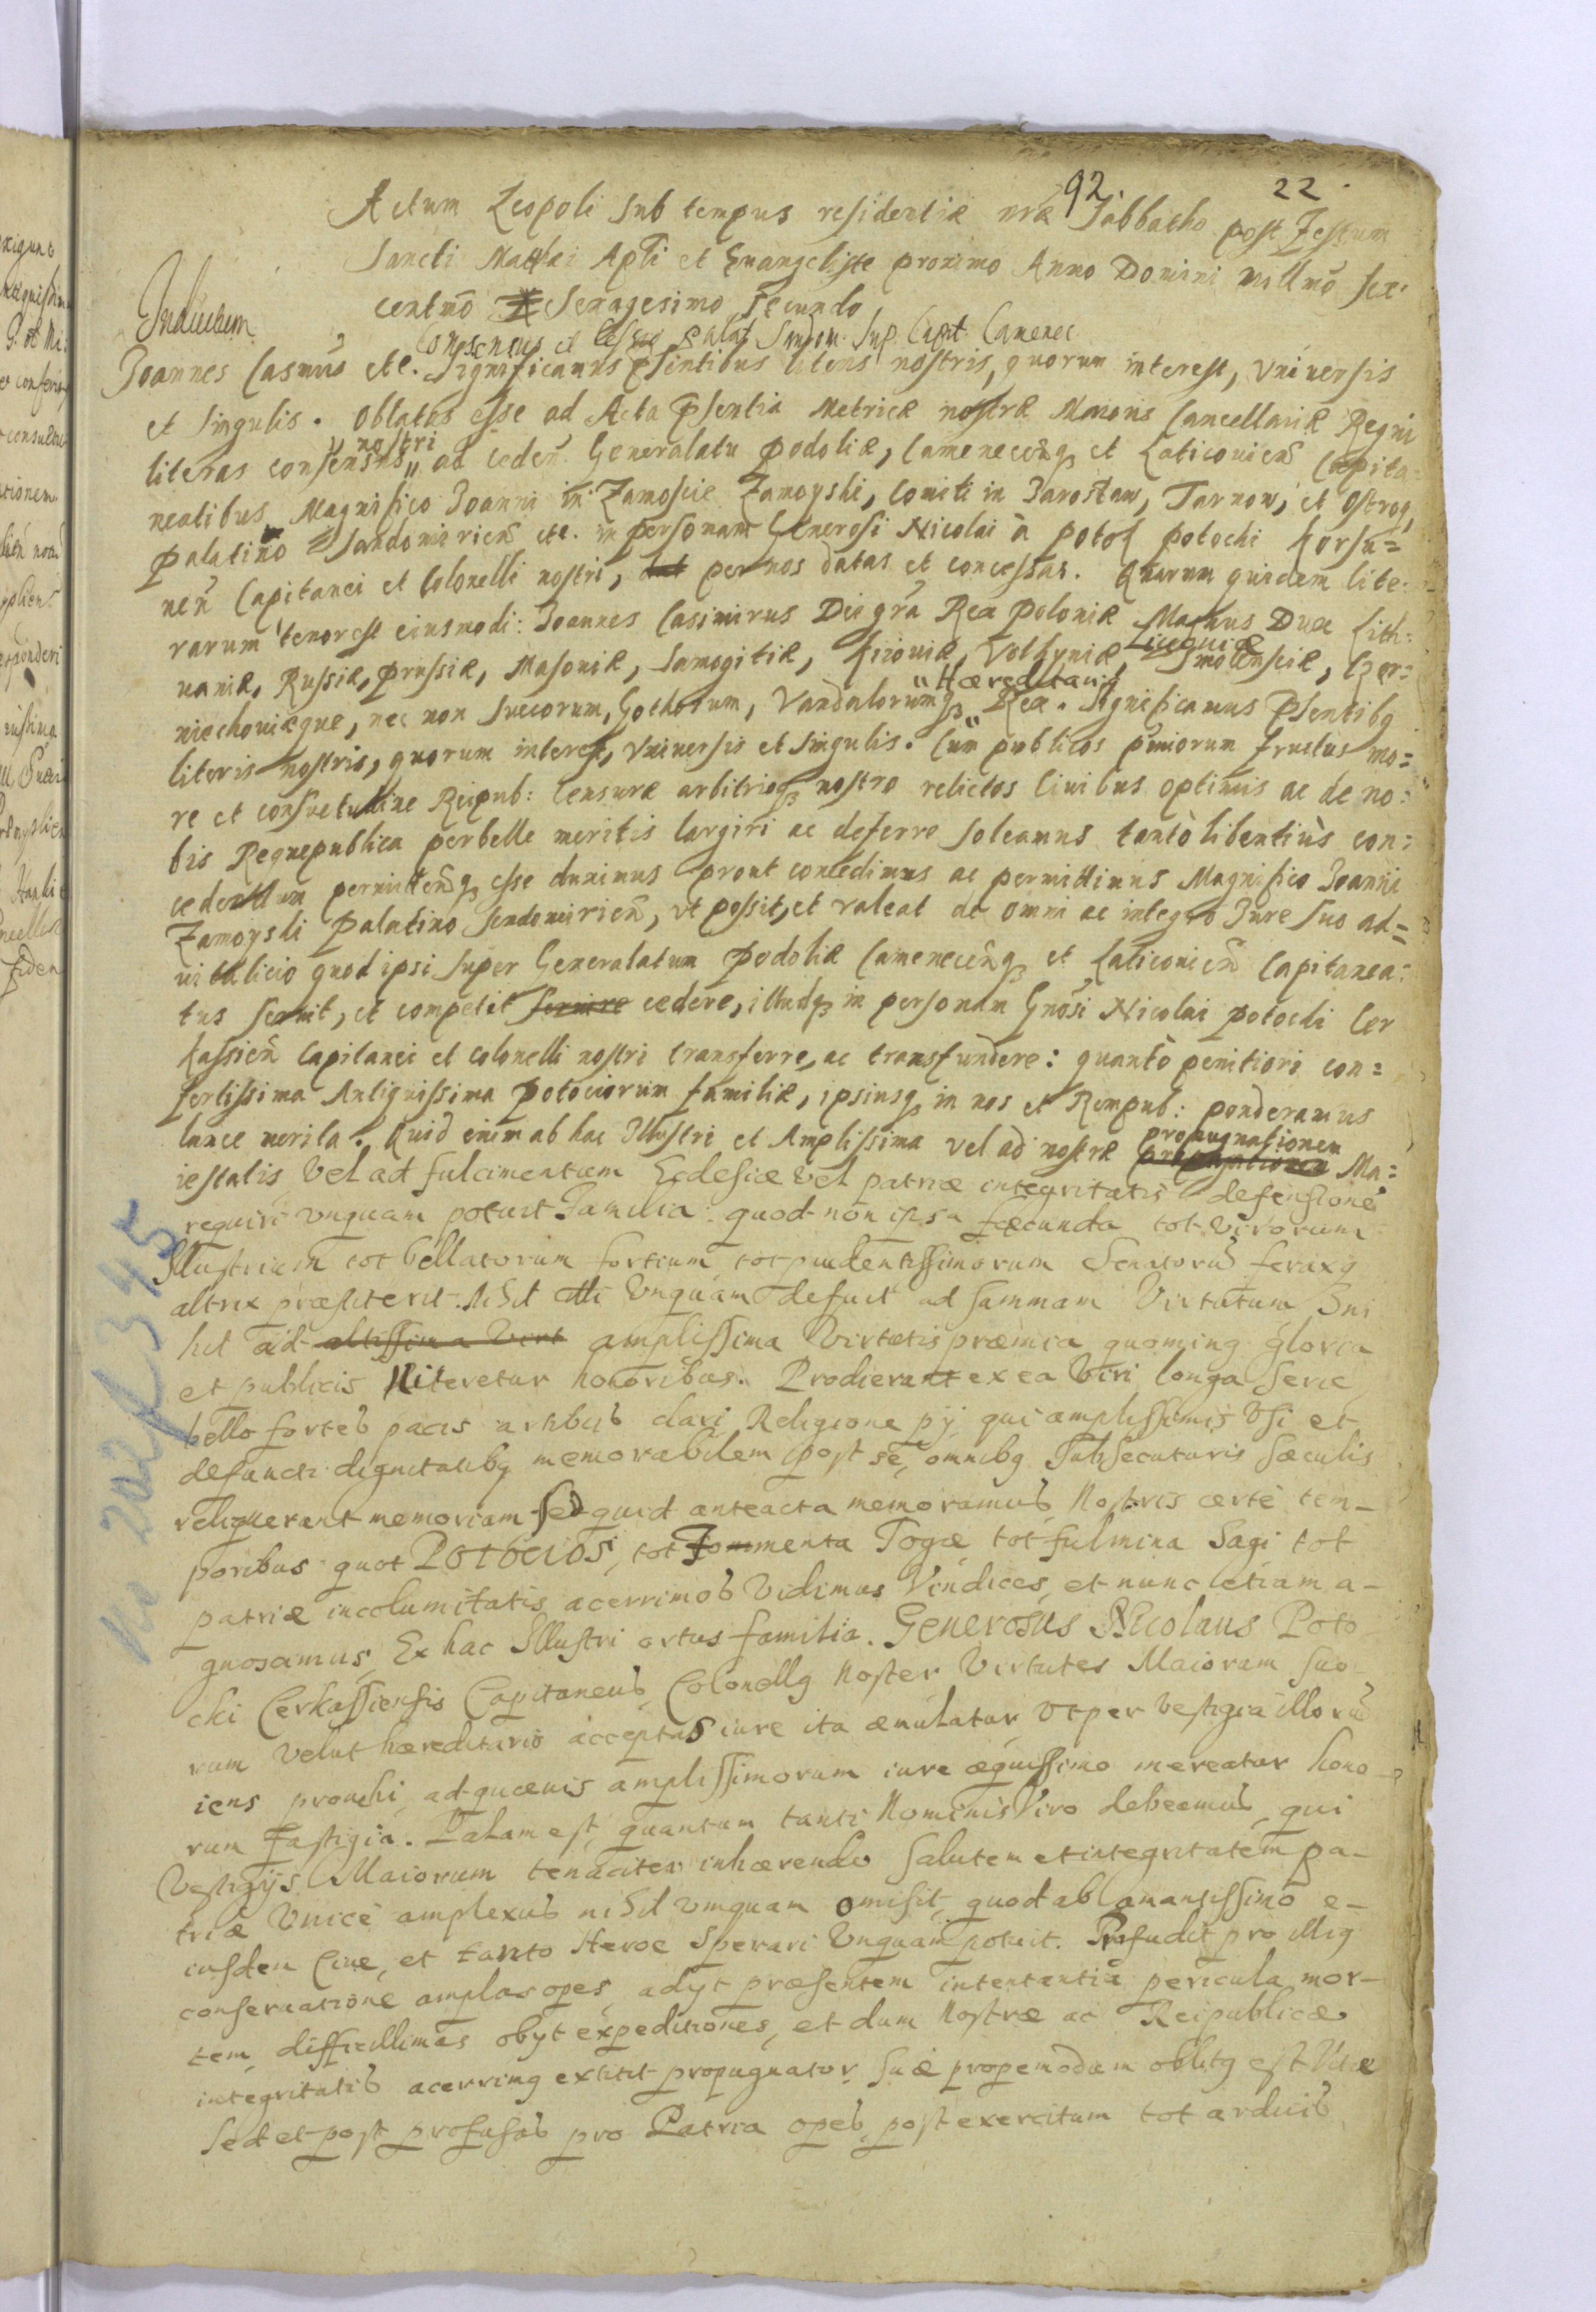 92 22
Actum Leopoli sub tempus residentiæ nræ Sabbatho post Festum
Sancti Matthæi Apli et Euangelistæ proximo Anno Domini millmo sex
centmo Sexagesimo secundo
Inducum
Consensus et Cessio Palat Sendom. sup. Capit. Camenec
Joannes Casmus etc. Significamus psentibus literis nostris, quorum interest, vniuersis
et singulis. Oblatas esse ad Acta psentia Metricæ nostræ Maioris Cancellariæ Regni
literas consensus nostri ad ceden Generalatu Podoliæ, Camenecenq et Laticouien Capita-
neatibus Magnifico Joanni in Zamoscie Zamoyski, Comiti in Jarosław, Tarnow, et Ostrog,
Palatino Sandomirien etc. in personam Generosi Nicolai à Potok Potocki Korsu=
nen Capitanei et Colonelli nostri, per nos datas et concessas. Quarum quidem lite-
rarum tenor est eiusmodi: Joannes Casimirus Dei gra Rex Poloniæ Magnus Dux Lith:
uaniæ, Russiæ, Prussiæ, Masouiæ, Samogitiæ, Kiiouiæ, Volhyniæ, Liuoniæ Smolensciæ, Czer=
niechouiæque, nec non Suecorum, Gothorum, Vandalorumq Hæreditariq Rex. Significamus psentibq
literis nostris, quorum interest, vniuersis et singulis. Cum publicos pmiorum fructus mo=
re et consuetudine Reipub: Censuræ arbitrioq nostro relictos Ciuibus optimis ac de no:
bis Reque publica perbelle meritis largiri ac deferre soleamus tantò libentiùs con=
cedendum permittendq esse duximus prout concedimus ac permittimus Magnifico Joanni
Zamoyski Palatino Sendomirien, vt possit, et valeat de omni ac integro Jure suo ad=
uitalicio quod ipsi super Generalatum Podoliæ Camenecenq et Laticouien Capitanea=
tus seruit, et competit seruire cedere, illudq in personam Gnosi Nicolai Potocki Cer
kassien Capitanei et Colonelli nostri transferre, ac transfundere: quantò penitiori con=
fertissima Antiquissima Potociorum familiæ, ipsiusq in nos et Rempub: ponderamus
lance merita. Quid enim ab hac Illustri et Amplissima vel ad nostræ propugnationem Ma=
iestatis Vel ad fulcimentum Ecclesiæ Vel patriæ integritatis defensione
requiri vnquam potuit Familia quod non ipsa fæcunda tot Virorum
Illustrium tot bellatorum fortium tot prudentissimorum Senatoru feraxq
altrix præstiterit. Nihil illi Vnquam defuit ad summam Virtutum Ni
hil ad altissima Virt amplissima Virtutis præmia quominq gloria
et publicis Niteretur honoribus. Prodierunt ex ea Viri longa Serie
bello fortes pacis artibus clari Religione pij qui amplissimis Vsi et
defuncti dignitatibq memorabilem post se omnibq Subsecuturis sæculis
reliquerunt memoriam Sed quid anteacta memoramus Nostris certè tem-
poribus quot Potocios, tot menta Togæ tot fulmina Sagi tot
patriæ incolumitatis acerrimos Vidimus Vindices, et nunc etiam a-
gnoscimus, Ex hac Illustri ortus familia. Generosus Nicolaus Poto
cki Cerkassiensis Capitaneus, Colonellq Noster Virtutes Maiorum suo
rum Velut hæreditario acceptas iure ita æmulatur Vt per Vestigia illoru
iens prouehi ad quæuis amplissimorum iure æquissimo mereatur hono-
rum Fastigia. Palam est, quantum tanti Nominis Viro debeamus qui
Vestigijs Maiorum tenaciter inhærendo Salutem et integritatem pa-
triæ Vnicè amplexus nihil vnquam omisit, quod ab amantissimo e-
iusdem Ciue, et tanto Heroe Sperari Vnquam potuit. Profudit pro illiq
conseruatione amplas opes adijt præsentem intentantia pericula mor-
tem difficillimas obijt expeditiones, et dum Nostræ ac Reipublicæ
integritatis acerrimq extitit propugnator Suæ propemodum oblitq est Vitæ
Sed et post profusas pro Patria opes, post exercitum tot arduis